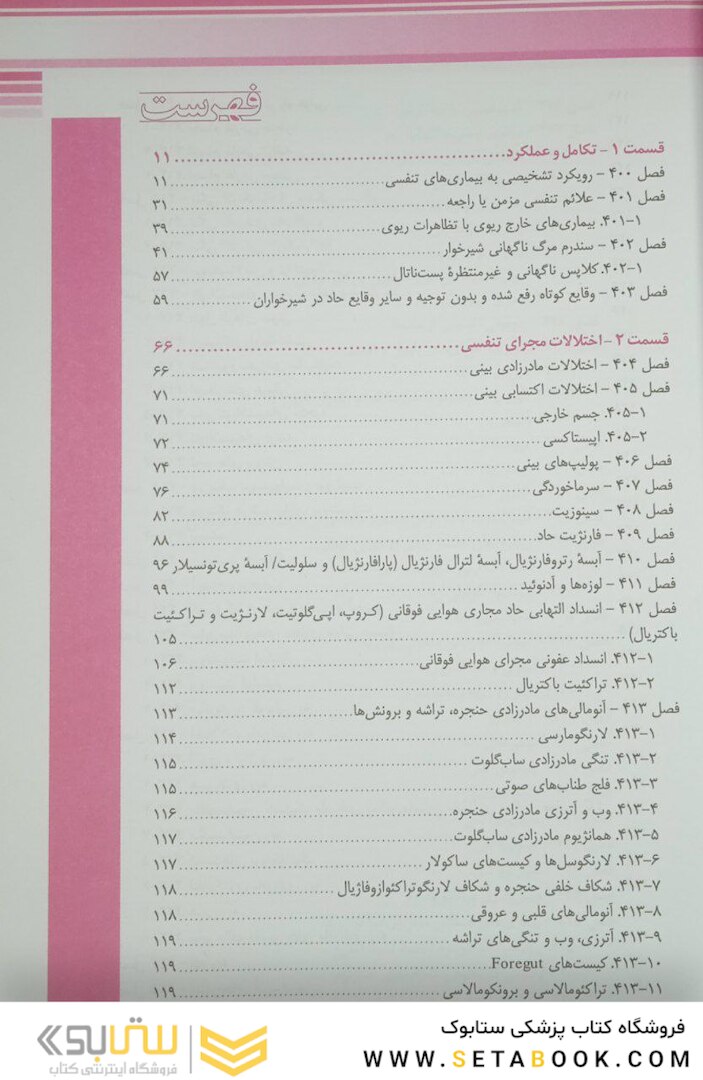 فهرست
قسمت ۱ – تکامل و عملکرد ........ ۱۱
فصل ۴۰۰ – رویکرد تشخیصی به بیماری‌های تنفسی ........ ۱۱
فصل ۴۰۱ – علائم تنفسی مزمن یا راجعه ........ ۳۱
۴۰۱-۱. بیماری‌های خارج ریوی با تظاهرات ریوی ........ ۳۹
فصل ۴۰۲ – سندرم مرگ ناگهانی شیرخوار ........ ۴۱
۴۰۲-۱. کلاپس ناگهانی و غیرمنتظرهٔ پست‌ناتال ........ ۵۷
فصل ۴۰۳ – وقایع کوتاه رفع شده و بدون توجیه و سایر وقایع حاد در شیرخواران ........ ۵۹
قسمت ۲ – اختلالات مجرای تنفسی ........ ۶۶
فصل ۴۰۴ – اختلالات مادرزادی بینی ........ ۶۶
فصل ۴۰۵ – اختلالات اکتسابی بینی ........ ۷۱
۴۰۵-۱. جسم خارجی ........ ۷۱
۴۰۵-۲. اپیستاکسی ........ ۷۲
فصل ۴۰۶ – پولیپ‌های بینی ........ ۷۴
فصل ۴۰۷ – سرماخوردگی ........ ۷۶
فصل ۴۰۸ – سینوزیت ........ ۸۲
فصل ۴۰۹ – فارنژیت حاد ........ ۸۸
فصل ۴۱۰ – آبسهٔ رتروفارنژیال، آبسهٔ لترال فارنژیال (پارافارنژیال) و سلولیت/ آبسهٔ پری‌تونسیلار ۹۶
فصل ۴۱۱ – لوزه‌ها و آدنوئید ........ ۹۹
فصل ۴۱۲ – انسداد التهابی حاد مجاری هوایی فوقانی (کروپ، اپی‌گلوتیت، لارنژیت و تراکئیت
باکتریال) ........ ۱۰۵
۴۱۲-۱. انسداد عفونی مجرای هوایی فوقانی ........ ۱۰۶
۴۱۲-۲. تراکئیت باکتریال ........ ۱۱۲
فصل ۴۱۳ – آنومالی‌های مادرزادی حنجره، تراشه و برونش‌ها ........ ۱۱۳
۴۱۳-۱. لارنگومارسی ........ ۱۱۴
۴۱۳-۲. تنگی مادرزادی ساب‌گلوت ........ ۱۱۵
۴۱۳-۳. فلج طناب‌های صوتی ........ ۱۱۵
۴۱۳-۴. وب و آترزی مادرزادی حنجره ........ ۱۱۶
۴۱۳-۵. همانژیوم مادرزادی ساب‌گلوت ........ ۱۱۷
۴۱۳-۶. لارنگوسل‌ها و کیست‌های ساکولار ........ ۱۱۷
۴۱۳-۷. شکاف خلفی حنجره و شکاف لارنگوتراکئوازوفاژیال ........ ۱۱۸
۴۱۳-۸. آنومالی‌های قلبی و عروقی ........ ۱۱۸
۴۱۳-۹. آترزی، وب و تنگی‌های تراشه ........ ۱۱۹
۴۱۳-۱۰. کیست‌های Foregut ........ ۱۱۹
۴۱۳-۱۱. تراکئومالاسی و برونکومالاسی ........ ۱۱۹
فروشگاه کتاب پزشکی ستابوک
WWW.SETABOOK.COM
ستابوک
فروشگاه اینترنتی کتاب